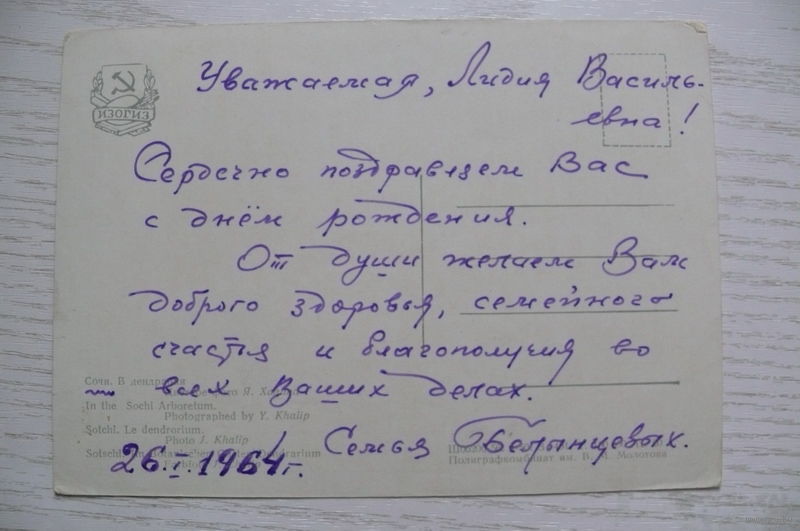 Уважаемая, Лидия Василь-
евна!
Сердечно поздравляем Вас
с днём рождения.
От души желаем Вам
доброго здоровья, семейного
счастья и благополучия во
всех Ваших делах.
Семья
26.I.1964г.
ИЗОГИЗ
Сочи. В дендрарии
Я.
In the Sochi Arboretum.
Photographed by Y. Khalip
Sotchi. Le dendrorium.
Photo J. Khalip
Полиграфкомбинат им. В. М. Молотова